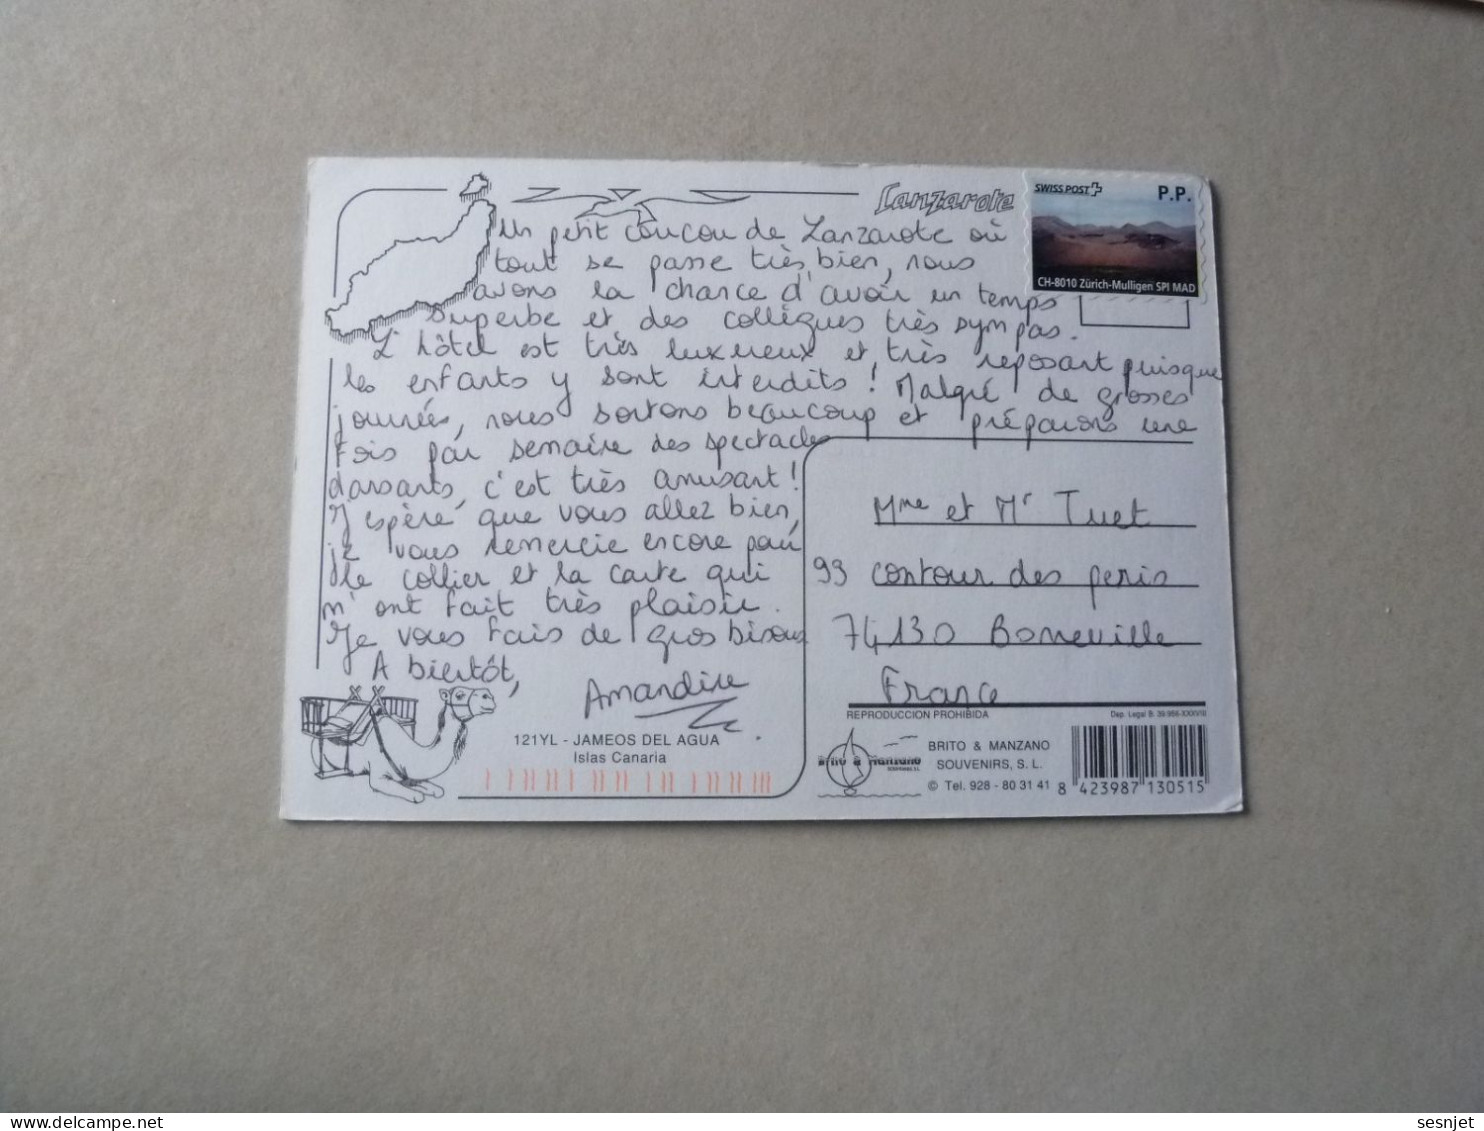 Lanzarote
SWISS POST
P.P.
CH-8010 Zürich-Mulligen SPI MAD
Un petit coucou de Lanzarote où
tout se passe très bien, nous
avons la chance d'avoir un temps
superbe et des collègues très sympas.
L'hôtel est très luxueux et très reposant puisque
les enfants y sont interdits ! Malgré de grosses
journées, nous sortons beaucoup et préparons une
fois par semaine des spectacles
dansants, c'est très amusant !
J'espère que vous allez bien,
je vous remercie encore pour
le collier et la carte qui
m'ont fait très plaisir.
Je vous fais de gros bisous
A bientôt,
Amandine
Mme et Mr Tuet
93 contour des peris
74130 Bonneville
France
REPRODUCCION PROHIBIDA
Dep. Legal B. 39.986-XXXVIII
121YL - JAMEOS DEL AGUA
Islas Canaria
Brito & Manzano
SOUVENIRS, S.L.
BRITO & MANZANO
SOUVENIRS, S. L.
© Tel. 928 - 80 31 41
8 423987 130515
delcampe.net
sesnjet